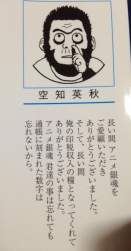 空知英秋
長い間、アニメ銀魂を
ご愛顧いただき
ありがとうございました。
そして、長い間、
俺の印税収入の糧となってくれて
ありがとうございました。
アニメ銀魂、君達の事は忘れても
通帳に刻まれた数字は
忘れないから。